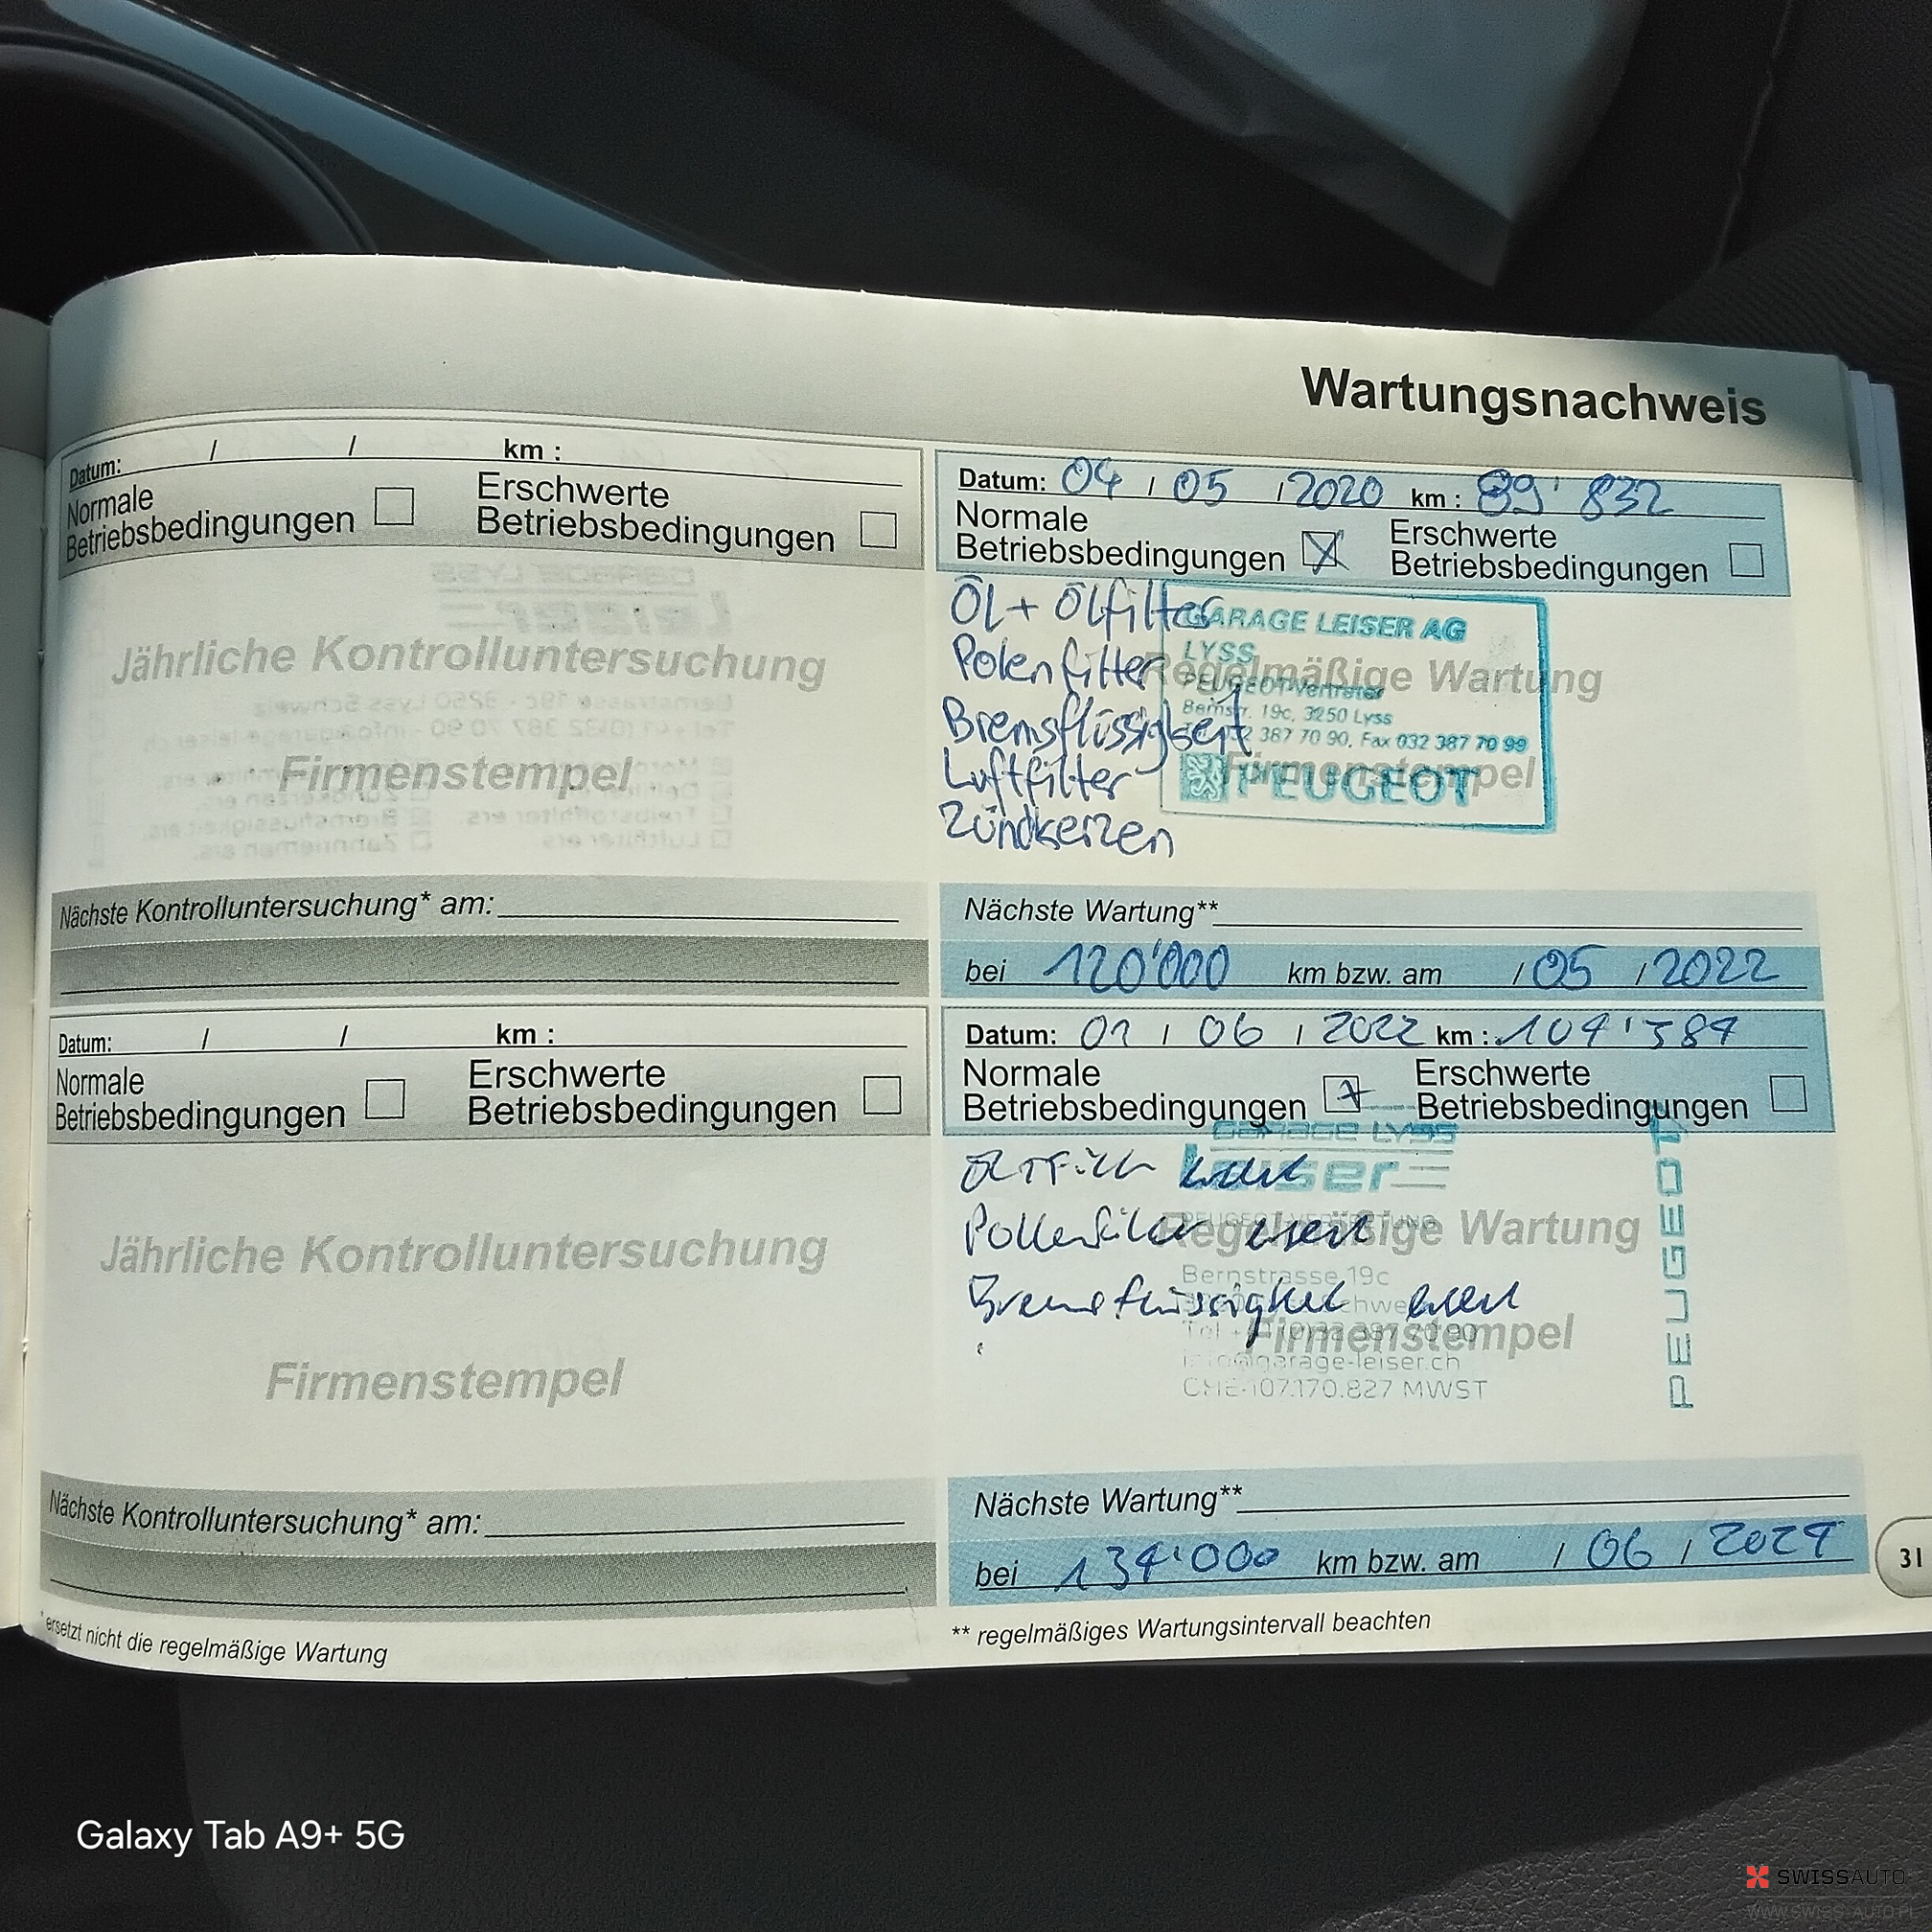 Wartungsnachweis
Datum: / / km :
Normale Betriebsbedingungen
Erschwerte Betriebsbedingungen
Jährliche Kontrolluntersuchung
Firmenstempel
Nächste Kontrolluntersuchung* am:
Datum: / / km :
Normale Betriebsbedingungen
Erschwerte Betriebsbedingungen
Jährliche Kontrolluntersuchung
Firmenstempel
Nächste Kontrolluntersuchung* am:
* ersetzt nicht die regelmäßige Wartung
Datum: 04 / 05 / 2020 km : 89' 832
Normale Betriebsbedingungen X
Erschwerte Betriebsbedingungen
ÖL + Ölfilter
Polenfilter
Bremsflüssigkeit
Luftfilter
Zündkerzen
GARAGE LEISER AG
LYSS
PEUGEOT-Vertreter
Bernstr. 19c, 3250 Lyss
032 387 70 90, Fax 032 387 70 99
PEUGEOT
Regelmäßige Wartung
Firmenstempel
Nächste Wartung**
bei 120'000 km bzw. am / 05 / 2022
Datum: 01 / 06 / 2022 km : 104'584
Normale Betriebsbedingungen x
Erschwerte Betriebsbedingungen
Bremsflüssigkeit
GARAGE LYSS
Leiser
PEUGEOT-VERTRETUNG
Bernstrasse 19c
info@garage-leiser.ch
CHE-107.170.827 MWST
PEUGEOT
Regelmäßige Wartung
Firmenstempel
Nächste Wartung**
bei 134'000 km bzw. am / 06 / 2024
** regelmäßiges Wartungsintervall beachten
31
Galaxy Tab A9+ 5G
SWISSAUTO
WWW.SWISS-AUTO.PL